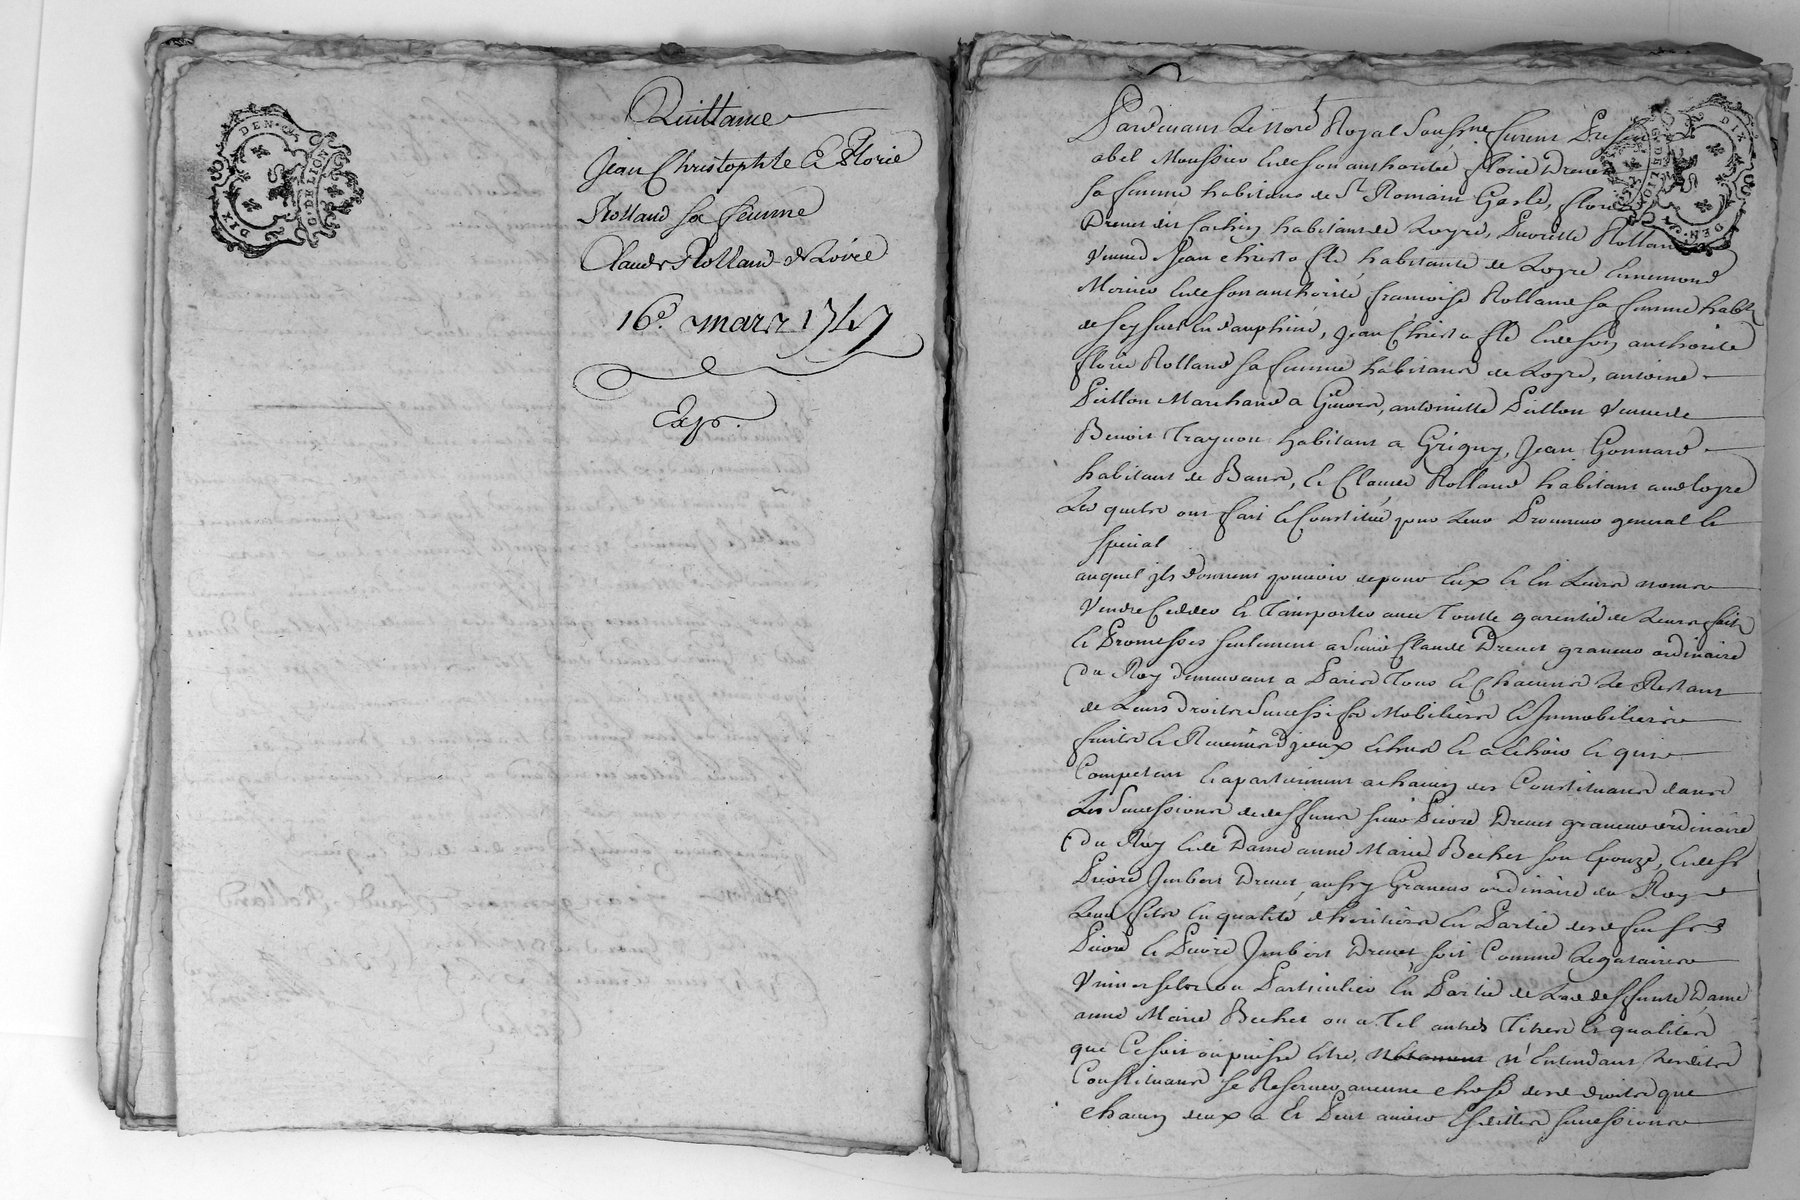 DIX DEN.
G. DE LION
Quittance
Jean Christophle & Florie
Rolland sa femme
Claude Rolland de Loire
16e. mars 1747
Exp.
DIX DEN.
G. DE LION
Pardevant Le Nore Royal Soussné furent
abel Moussier & de son authorité florie Drevet
sa femme habitans de St Romain
Drevet dit habitant de Loyre, Pierrette Rolland
Veuve Jean christofle habitante de Loyre
& de son authorité francoise Rolland sa femme habts
de Seyssuel En dauphiné, Jean Christofle & de son authorité
florie Rolland sa femme habitans de Loyre, antoine
Pitton Marchand a Givors, antoinette Pitton Veuve de
Benoit habitant a Grigny, Jean Gonnard
habitant de Bans, & Claude Rolland habitant aud Loyre
Lesquels ont fait & Constitué pour Leur Procureur general &
special
auquel ils donnent pouvoir de pour Eux & En Leurs noms
Vendre Ceder & Transporter avec Toutte garentie de Leurs faits
& Promesses seulement a Sieur Claude Drevet graveur ordinaire
du Roy demeurant a Paris Tous & Chacuns Le Restant
de Leurs droits Successifs Mobiliers & Immobiliers
fruits & Revenus d'iceux & a Echoir & qui
Competent & apartiennent a chacun des Constituans dans
Les Successions de deffunts sieur Pierre Drevet graveur ordinaire
du Roy & de Dame anne Marie Bechet son Epouze, & de Sr
Pierre Imbert Drevet, aussy Graveur ordinaire du Roy
Leur fils En qualité d'heritiers En Partie desd feu Srs
Pierre & Pierre Imbert Drevet soit Comme Legataires
Universels ou Particulier En Partie de Lad deffunte Dame
anne Marie Bechet ou a Tel autres Titres & qualités
que Ce soit ou puisse Estre, n'Entendant Lesdits
Constituans se Reserver aucune chose desd droits que
chacun deux a & Peut avoir Esdittes successions